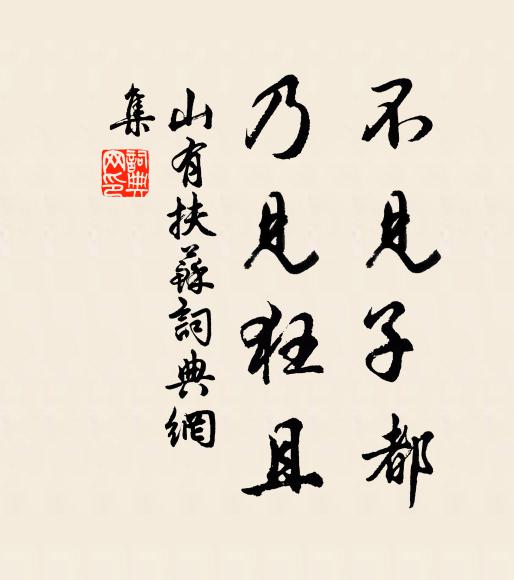 不見子都
乃見狂且
山有扶蘇詞典網
集
詞典
网印